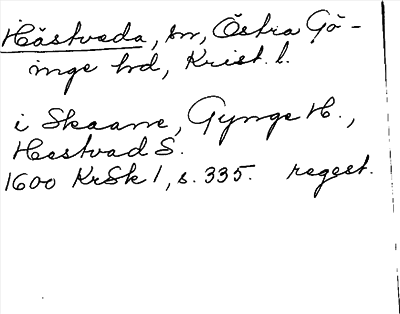 Hästveda, sn, Östra Gö-
inge hd, Krist. l.
i Skaane, Gynge H.,
Hestvad S.
1600 KrSk 1, s. 335. regest.